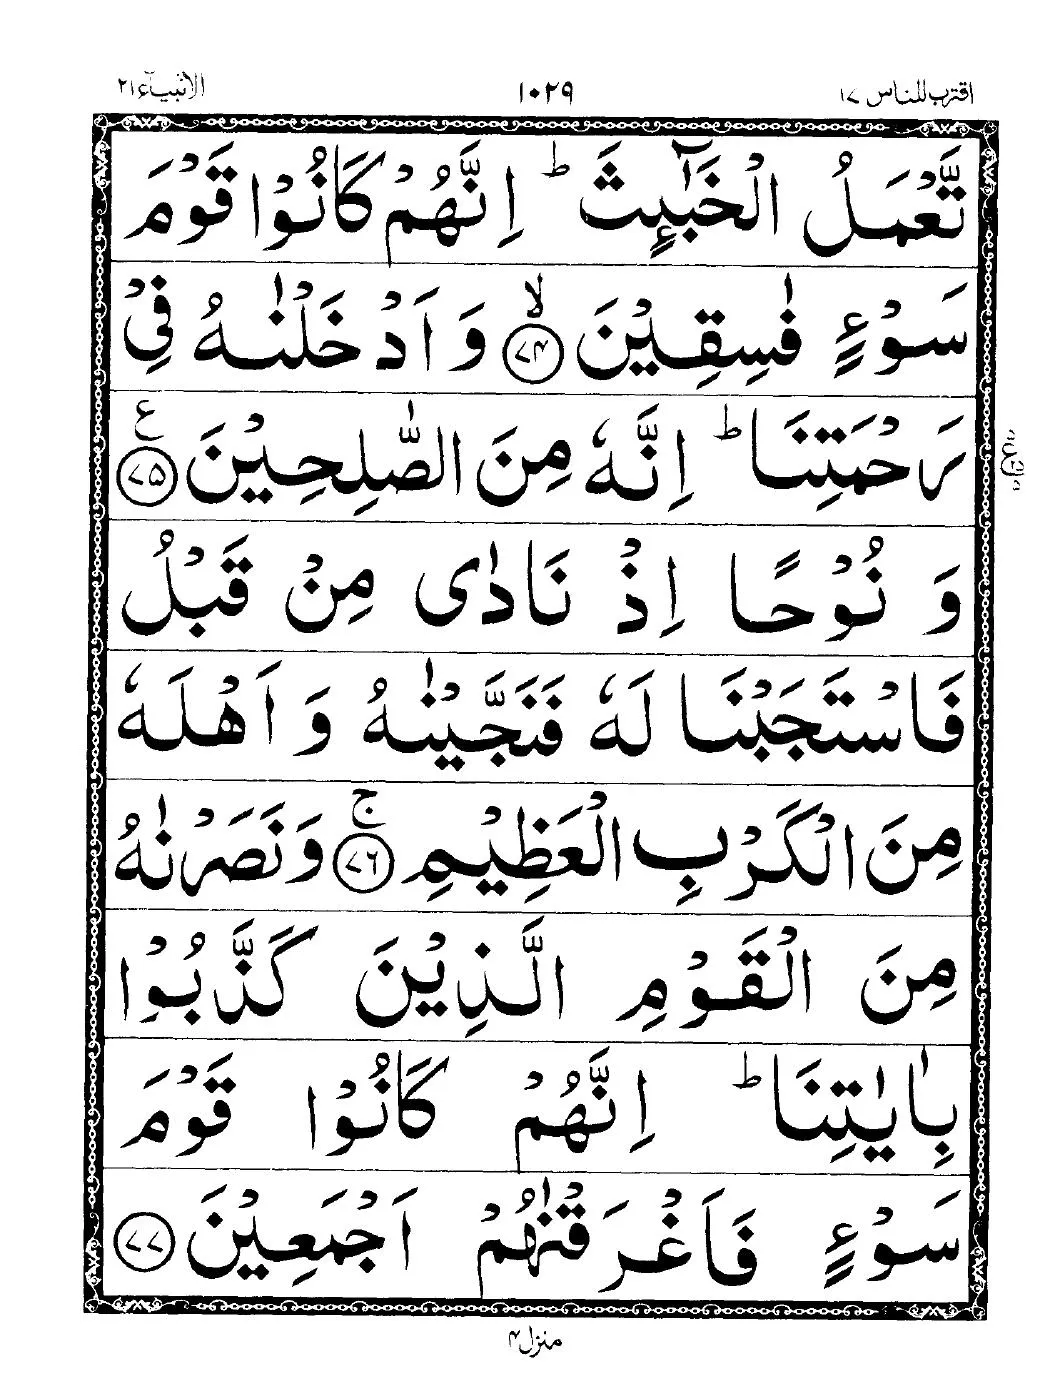 اقترب للناس ١٧ ١٠٢٩ الانبیآء ٢١
تَّعْمَلُ الْخَبٰٓىِٕثَ ؕ اِنَّهُمْ كَانُوْا قَوْمَ
سَوْءٍ فٰسِقِیْنَ ۙ﴿۷۴﴾ وَ اَدْخَلْنٰهُ فِیْ
رَحْمَتِنَا ؕ اِنَّهٗ مِنَ الصّٰلِحِیْنَ ﴿۷۵﴾ ع
وَ نُوْحًا اِذْ نَادٰی مِنْ قَبْلُ
فَاسْتَجَبْنَا لَهٗ فَنَجَّیْنٰهُ وَ اَهْلَهٗ
مِنَ الْكَرْبِ الْعَظِیْمِ ۚ﴿۷۶﴾ وَ نَصَرْنٰهُ
مِنَ الْقَوْمِ الَّذِیْنَ كَذَّبُوْا
بِاٰیٰتِنَا ؕ اِنَّهُمْ كَانُوْا قَوْمَ
سَوْءٍ فَاَغْرَقْنٰهُمْ اَجْمَعِیْنَ ﴿۷۷﴾
منزل ۴